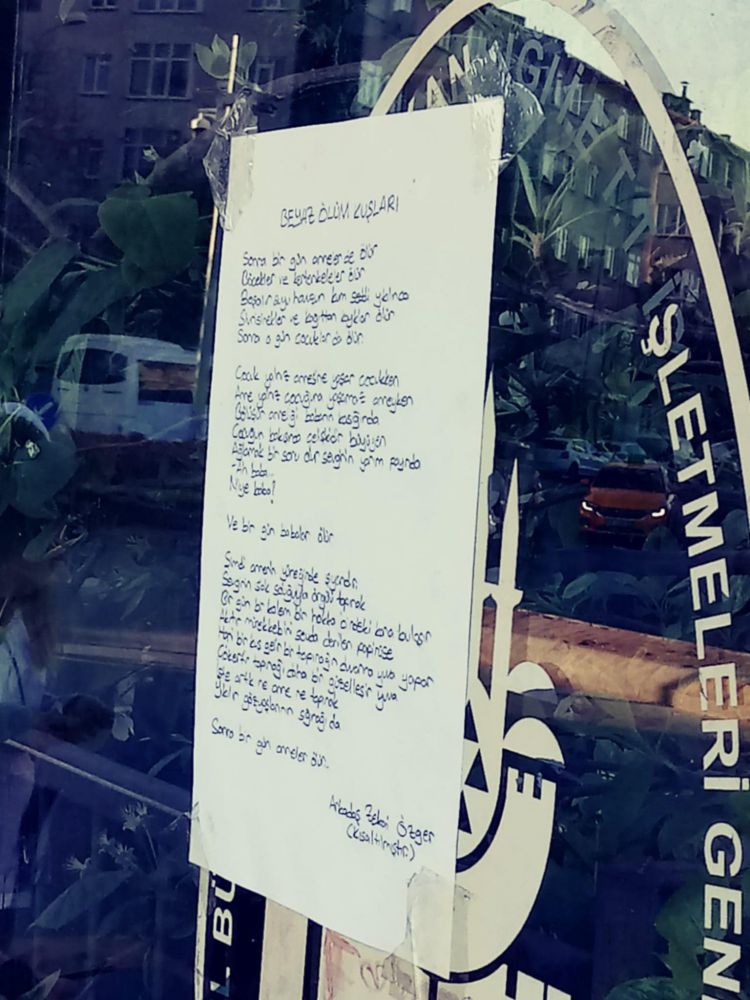 BEYAZ ÖLÜM KUŞLARI
Sonra bir gün anneler de ölür
Böcekler ve kertenkeleler ölür
Boşalır suyu havuzun kum seddi yıkılınca
Sivrisinekler ve kağıttan kayıklar ölür
Sonra o gün çocuklar da ölür.
Çocuk yalnız annesine yaşar çocukken
Anne yalnız çocuğuna yaşamaz anneyken
Bölüşür anneliği babanın kasığında
Çocuğun bakışına çelişkidir büyüyen
Ağlamak bir soru olur sevginin yarım payında
-Ah baba...
Niye baba?
Ve bir gün babalar ölür
Şimdi annenin yüreğinde şivandır
Sevginin sak soluğuyla örgülü toprak
Bir gün bir kalem bir hokka içindeki kana bulaşır
Akıtır mürekkebini sevda denilen
bir kuş gelir bir toprağın duvarına yuva yapar
Çökertir toprağı daha bir güzelleşir yuva
İşte artık ne anne ne toprak
Yıkılır gözyaşlarının sığınağı da
Sonra bir gün anneler ölür..
Arkadaş Zekai Özger
(Kısaltılmıştır.)
İŞLETMELERİ GEN
L BÜ
E